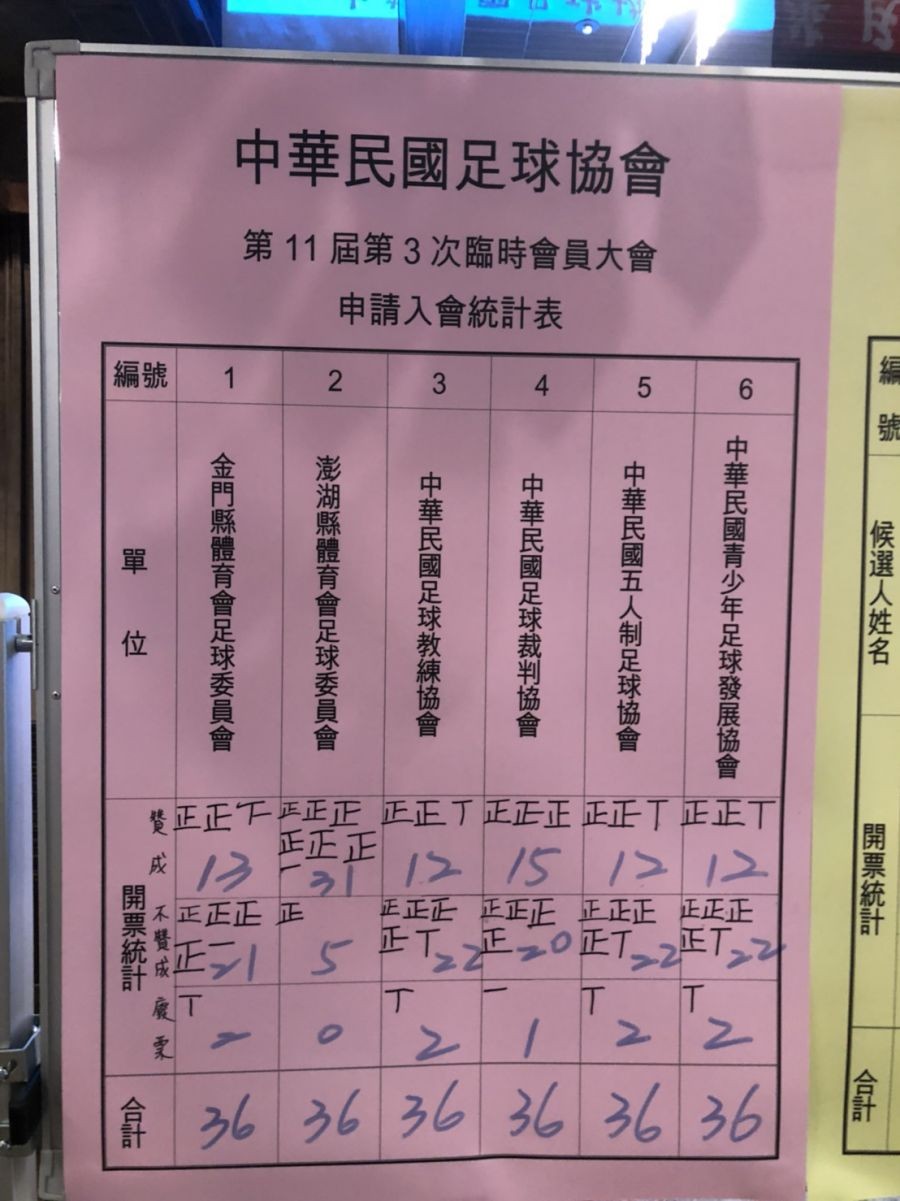 中華民國足球協會
第 11 屆第 3 次臨時會員大會
申請入會統計表
編號 1 2 3 4 5 6
單位
金門縣體育會足球委員會
澎湖縣體育會足球委員會
中華民國足球教練協會
中華民國足球裁判協會
中華民國五人制足球協會
中華民國青少年足球發展協會
開票統計
贊成 正正下 13 正正正正正正一 31 正正丅 12 正正正 15 正正丅 12 正正丅 12
不贊成 正正正正一 21 正 5 正正正正丅 22 正正正正 20 正正正正丅 22 正正正正丅 22
廢票 丅 2 0 丅 2 一 1 丅 2 丅 2
合計 36 36 36 36 36 36
編號
候選人姓名
開票統計
合計